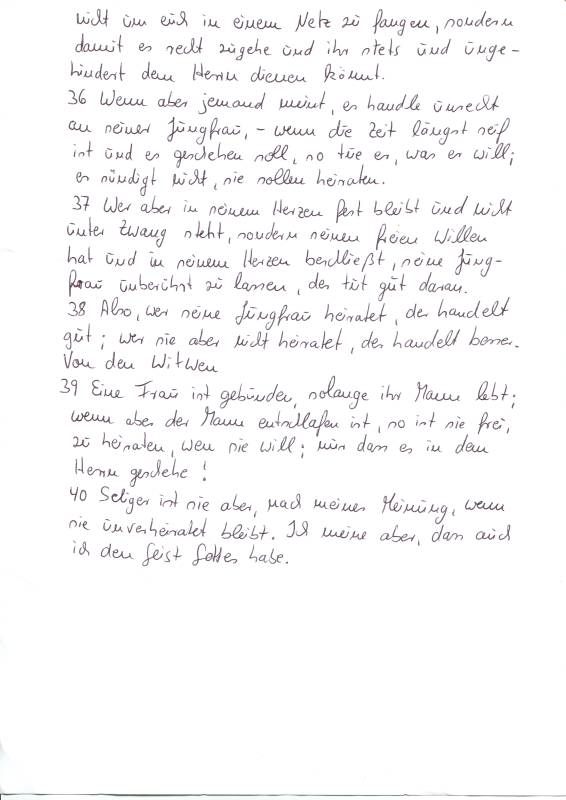 nicht um euch in einem Netz zu fangen, sondern
damit es recht zugehe und ihr stets und unge-
hindert dem Herrn dienen könnt.
36 Wenn aber jemand meint, er handle unrecht
an seiner Jungfrau, - wenn die Zeit längst reif
ist und es geschehen soll, so tue er, was er will;
er sündigt nicht, sie sollen heiraten.
37 Wer aber in seinem Herzen fest bleibt und nicht
unter Zwang steht, sondern seinen freien Willen
hat und in seinem Herzen beschließt, seine Jung-
frau unberührt zu lassen, der tut gut daran.
38 Also, wer seine Jungfrau heiratet, der handelt
gut; wer sie aber nicht heiratet, der handelt besser.
Von den Witwen
39 Eine Frau ist gebunden, solange ihr Mann lebt;
wenn aber der Mann entschlafen ist, so ist sie frei,
zu heiraten, wen sie will; nur dass es in dem
Herrn geschehe!
40 Seliger ist sie aber, nach meiner Meinung, wenn
sie unverheiratet bleibt. Ich meine aber, dass auch
ich den Geist Gottes habe.